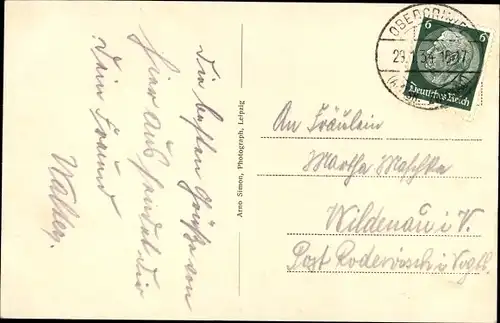 Die besten Grüße von
hier aus sendet dir
Dein Freund
Walter.
Arno Simon, Photograph, Leipzig
6 6
Deutsches Reich
An Fräulein
Martha Maschke
Wildenau i. V.
Post Rodewisch i. Vogtl.